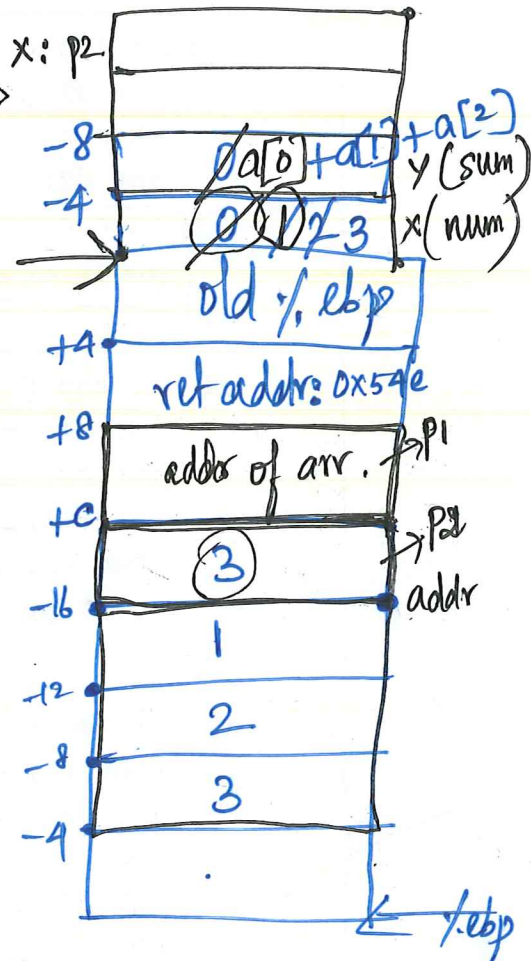 x: p2
-8 0 a[0] + a[1] + a[2] y (sum)
-4 0 1 2 3 x (num)
old %ebp
+4
ret addr: 0x54e
+8
addr of arr. → p1
+c
3 → p2
-16 addr
1
-12
2
-8
3
-4
%ebp